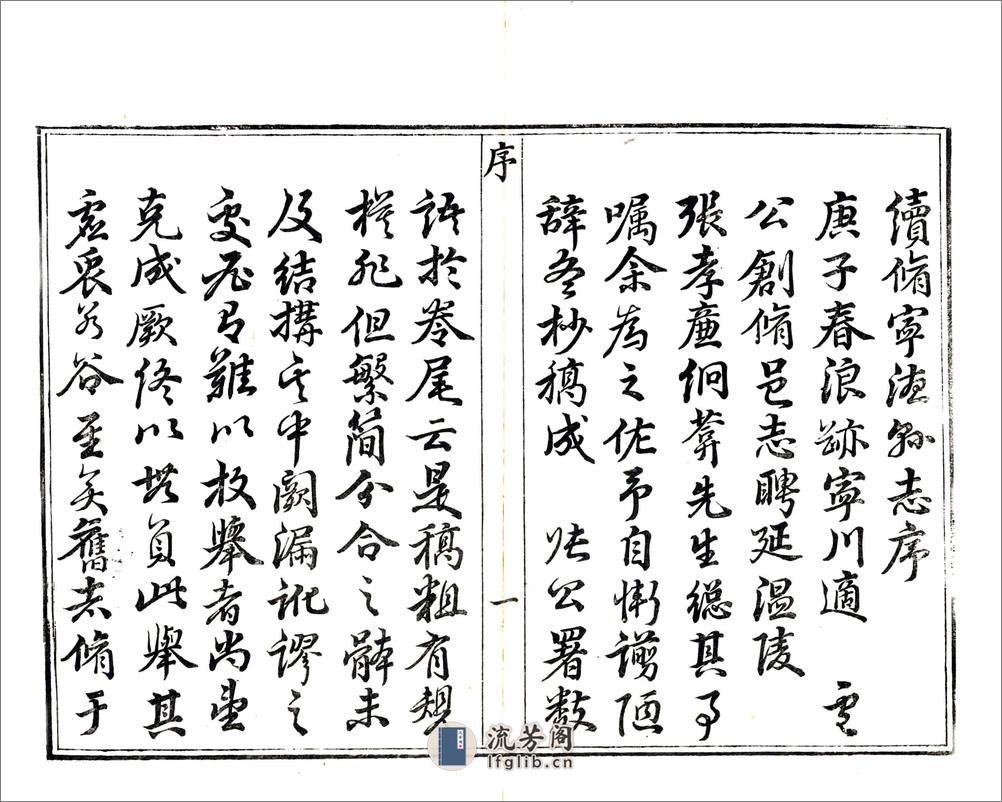 續脩寧德縣志序
庚子春浪跡寧川適
公創脩邑志聘延溫陵
張孝廉絅葊先生總其事
囑余為之佐予自慚謭陋
辭冬杪稿成 張公署數
序
一
語於卷尾云是稿粗有規
模矣但繁簡分合之體未
及結搆其中闕漏訛謬之
處尤難以枚舉者尚望
克成厥終以塔負此舉其
虛衷若谷至矣舊志脩于
流芳阁
lfglib.cn